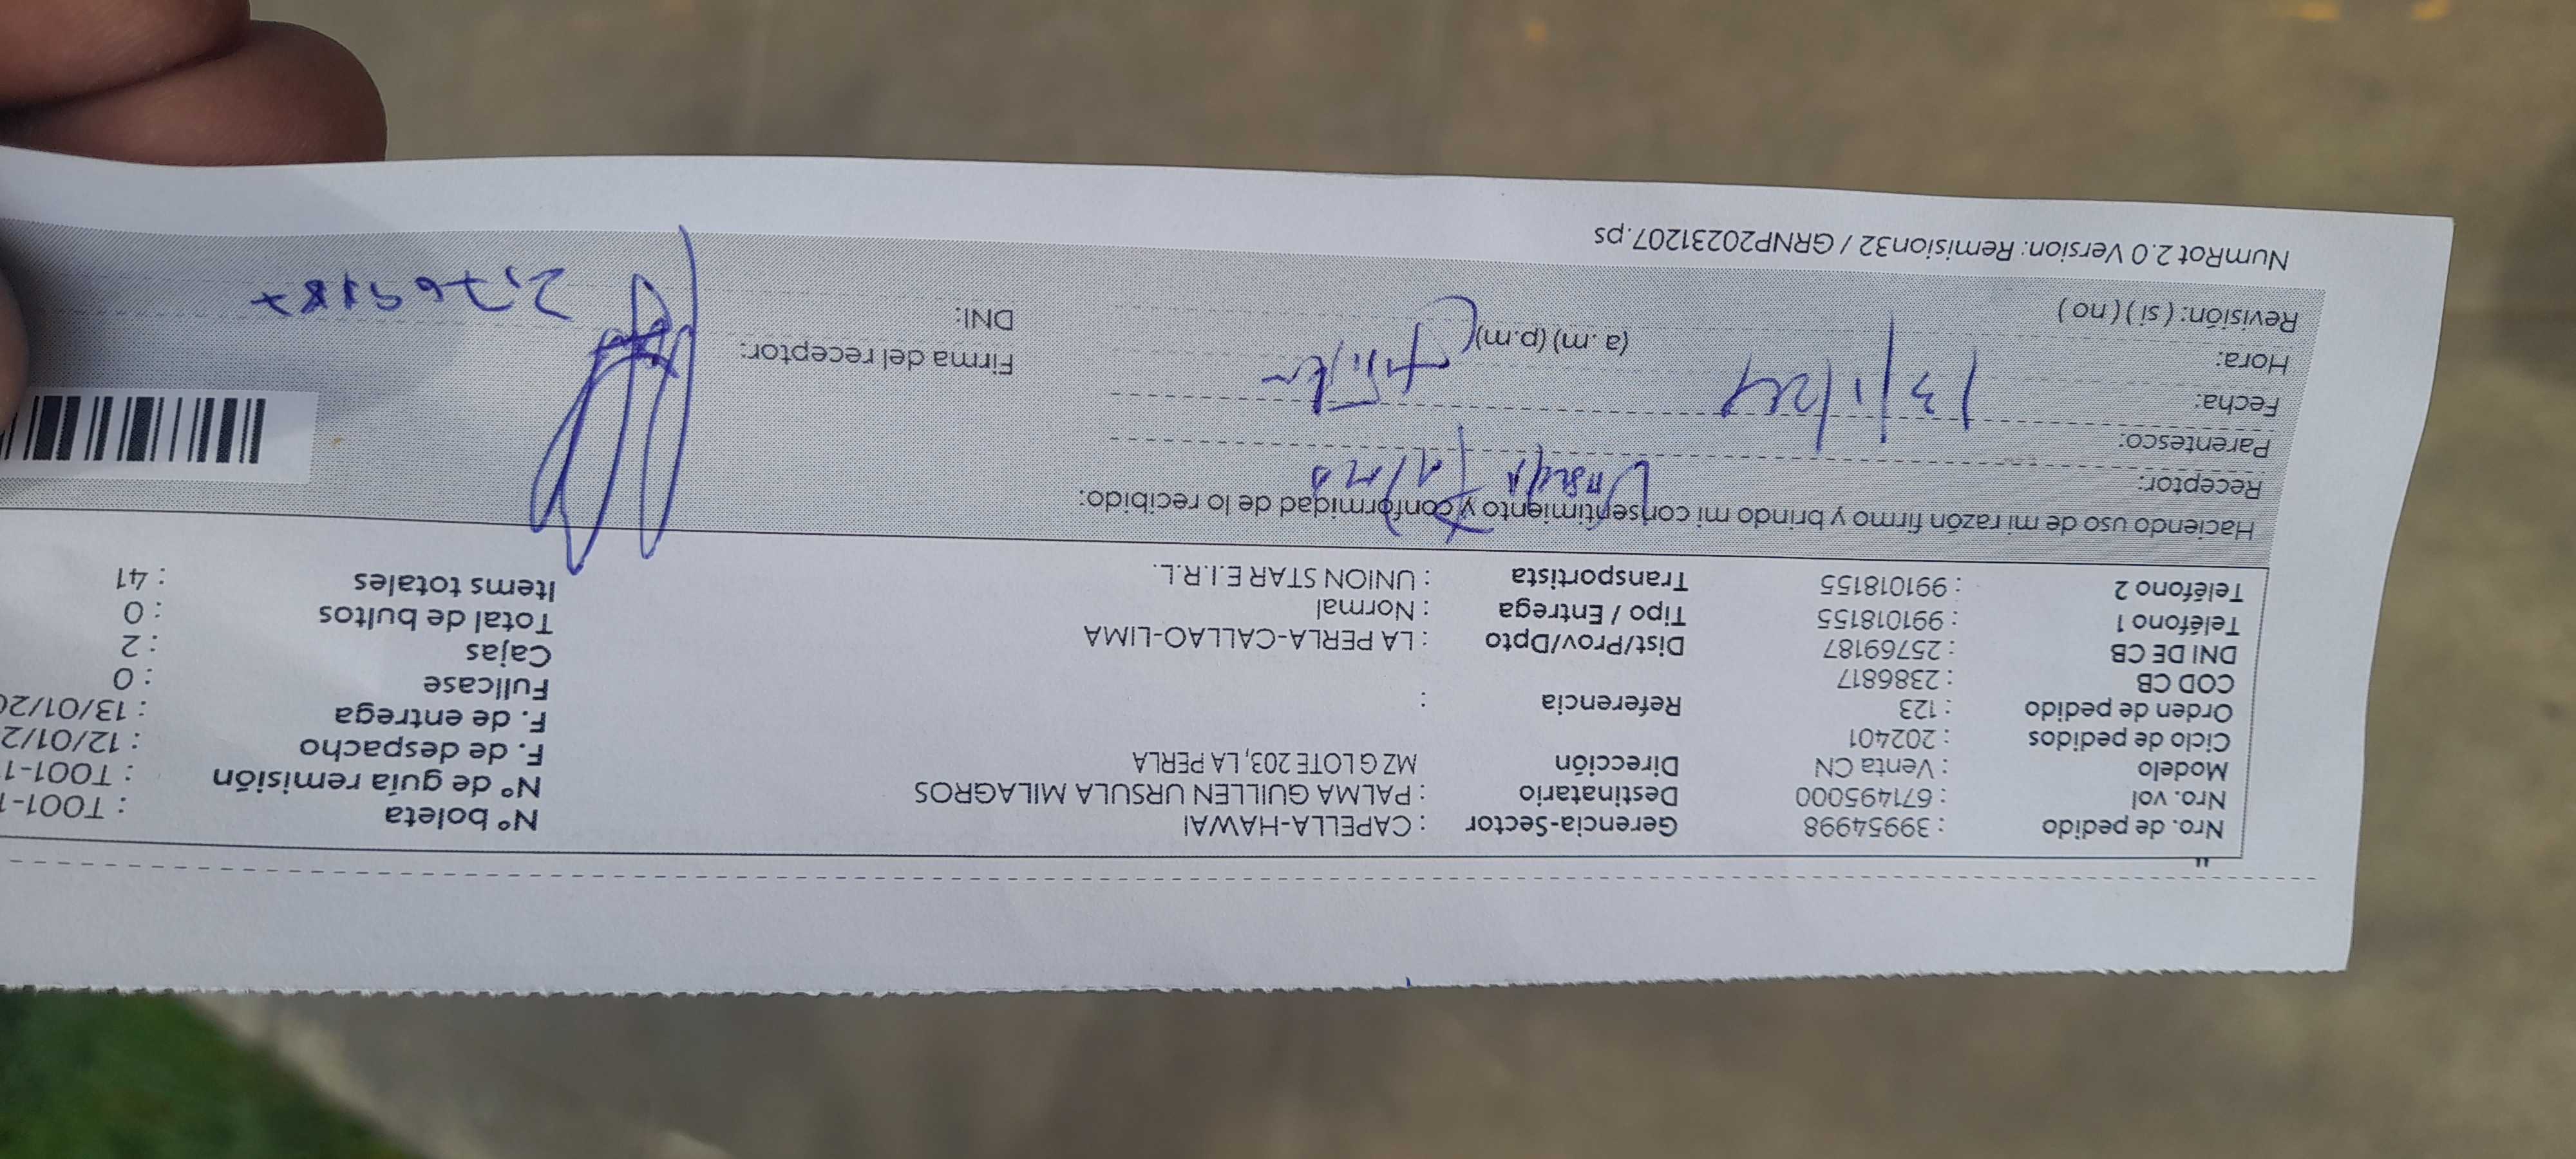 Nro. de pedido : 39954998 Gerencia-Sector : CAPELLA-HAWAI Nº boleta : T001-1
Nro. vol : 671495000 Destinatario : PALMA GUILLEN URSULA MILAGROS Nº de guía remisión : T001-1
Modelo : Venta CN Dirección MZ G LOTE 203, LA PERLA F. de despacho : 12/01/2
Ciclo de pedidos : 202401 F. de entrega : 13/01/20
Orden de pedido : 123 Referencia : Fullcase : 0
COD CB : 2386817 Cajas : 2
DNI DE CB : 25769187 Dist/Prov/Dpto : LA PERLA-CALLAO-LIMA Total de bultos : 0
Teléfono 1 : 991018155 Tipo / Entrega : Normal Items totales : 41
Teléfono 2 : 991018155 Transportista : UNION STAR E.I.R.L.
Haciendo uso de mi razón firmo y brindo mi consentimiento y conformidad de lo recibido:
Receptor: Ursula Palma
Parentesco:
Fecha: 13/1/24
Hora: (a.m) (p.m) Firma del receptor:
Revisión: ( si ) ( no ) DNI:
NumRot 2.0 Version: Remision32 / GRNP20231207.ps